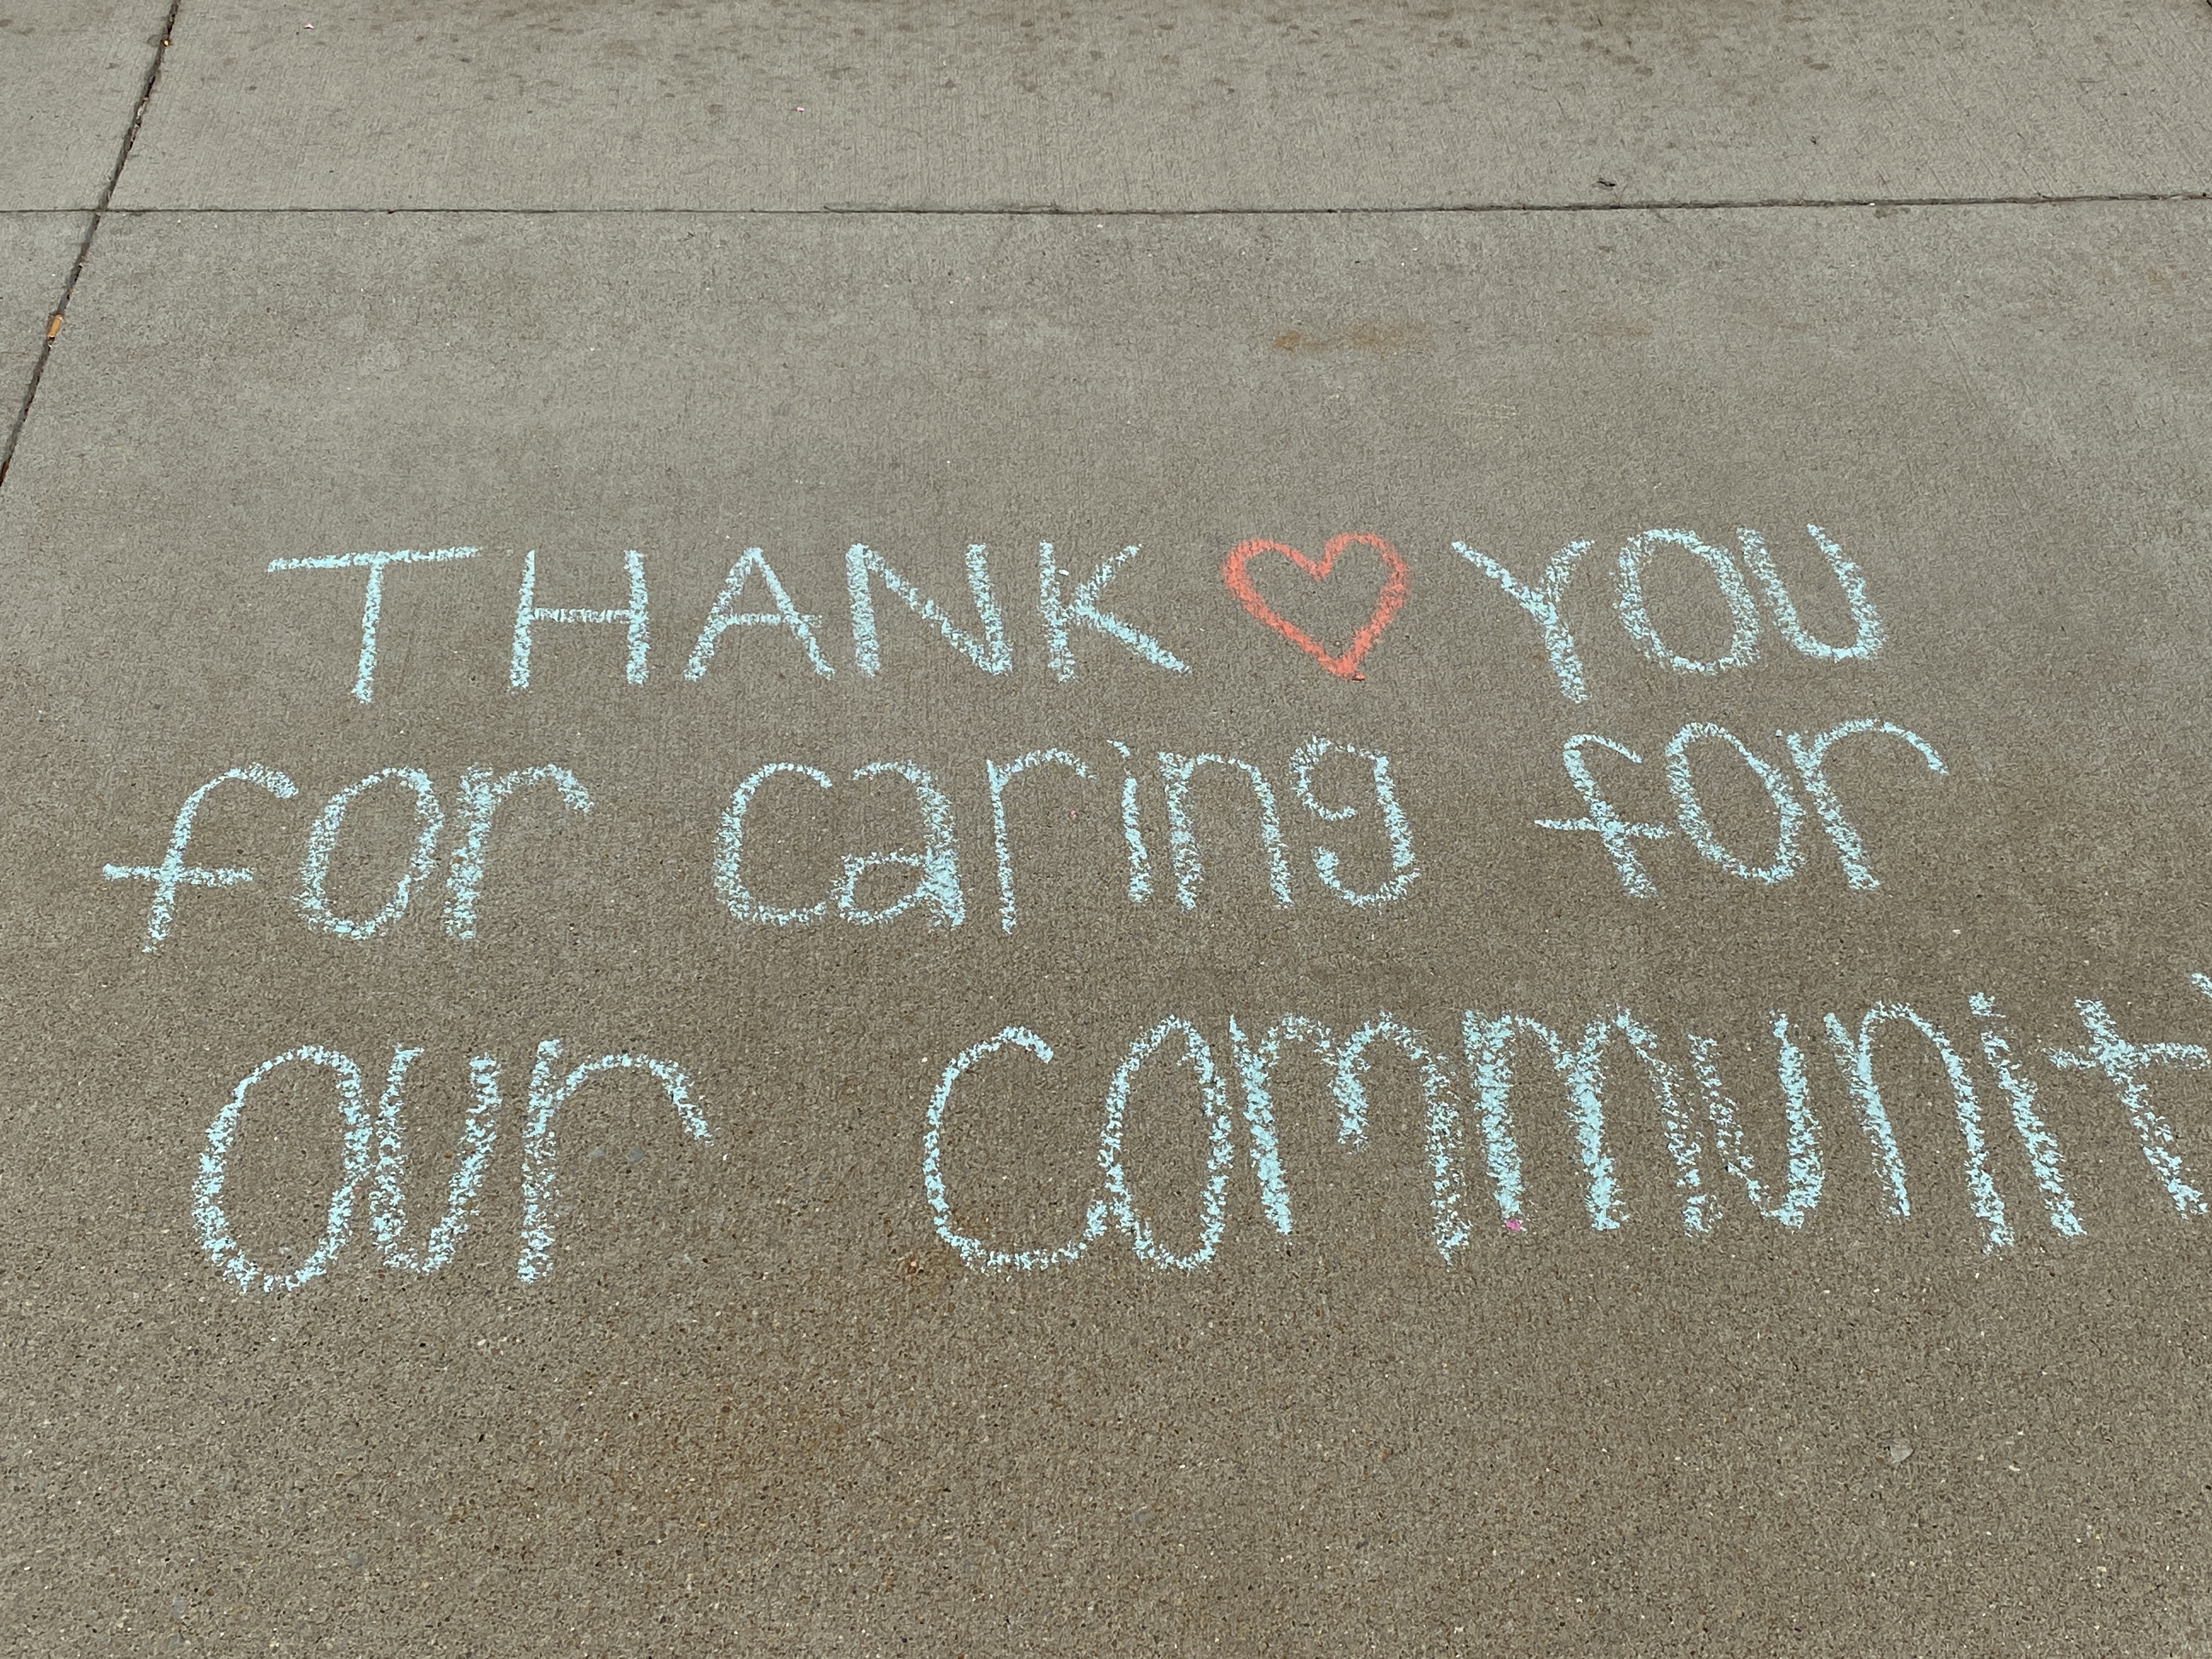 THANK ♡ YOU
for caring for
our communit